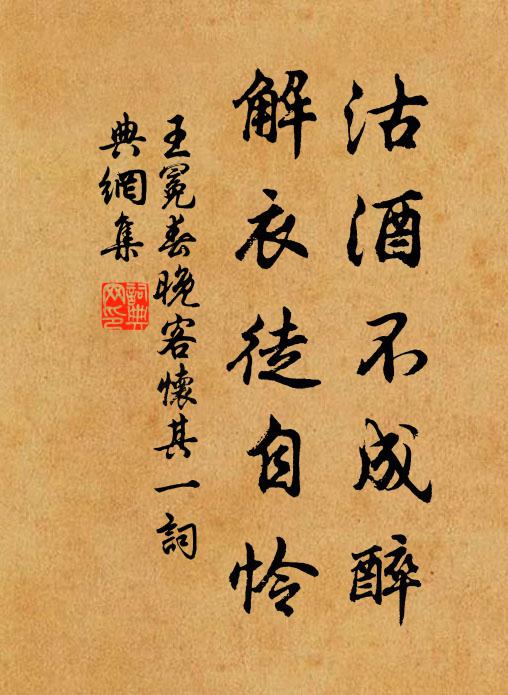 沽酒不成醉
解衣徒自怜
王冕春晚客懷其一詞
典網集
詞典
网印